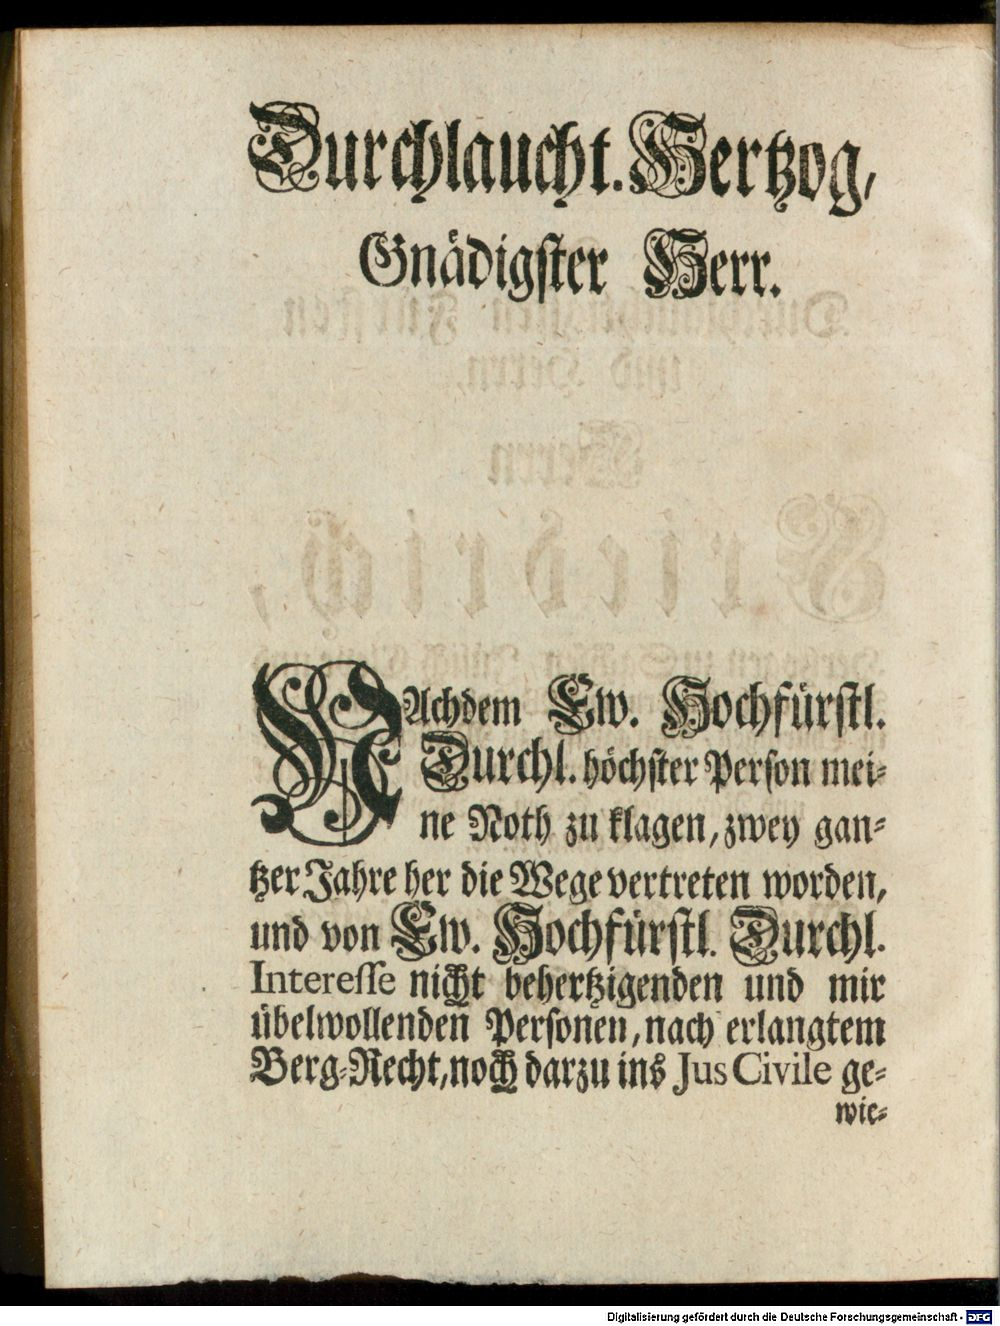 Durchlaucht. Hertzog,
Gnädigster Herr.
NAchdem Ew. Hochfürstl.
Durchl. höchster Person mei-
ne Noth zu klagen, zwey gan-
tzer Jahre her die Wege vertreten worden,
und von Ew. Hochfürstl. Durchl.
Interesse nicht behertzigenden und mir
übelwollenden Personen, nach erlangtem
Berg-Recht, noch darzu ins Jus Civile ge-
wie-
Digitalisierung gefördert durch die Deutsche Forschungsgemeinschaft - DFG